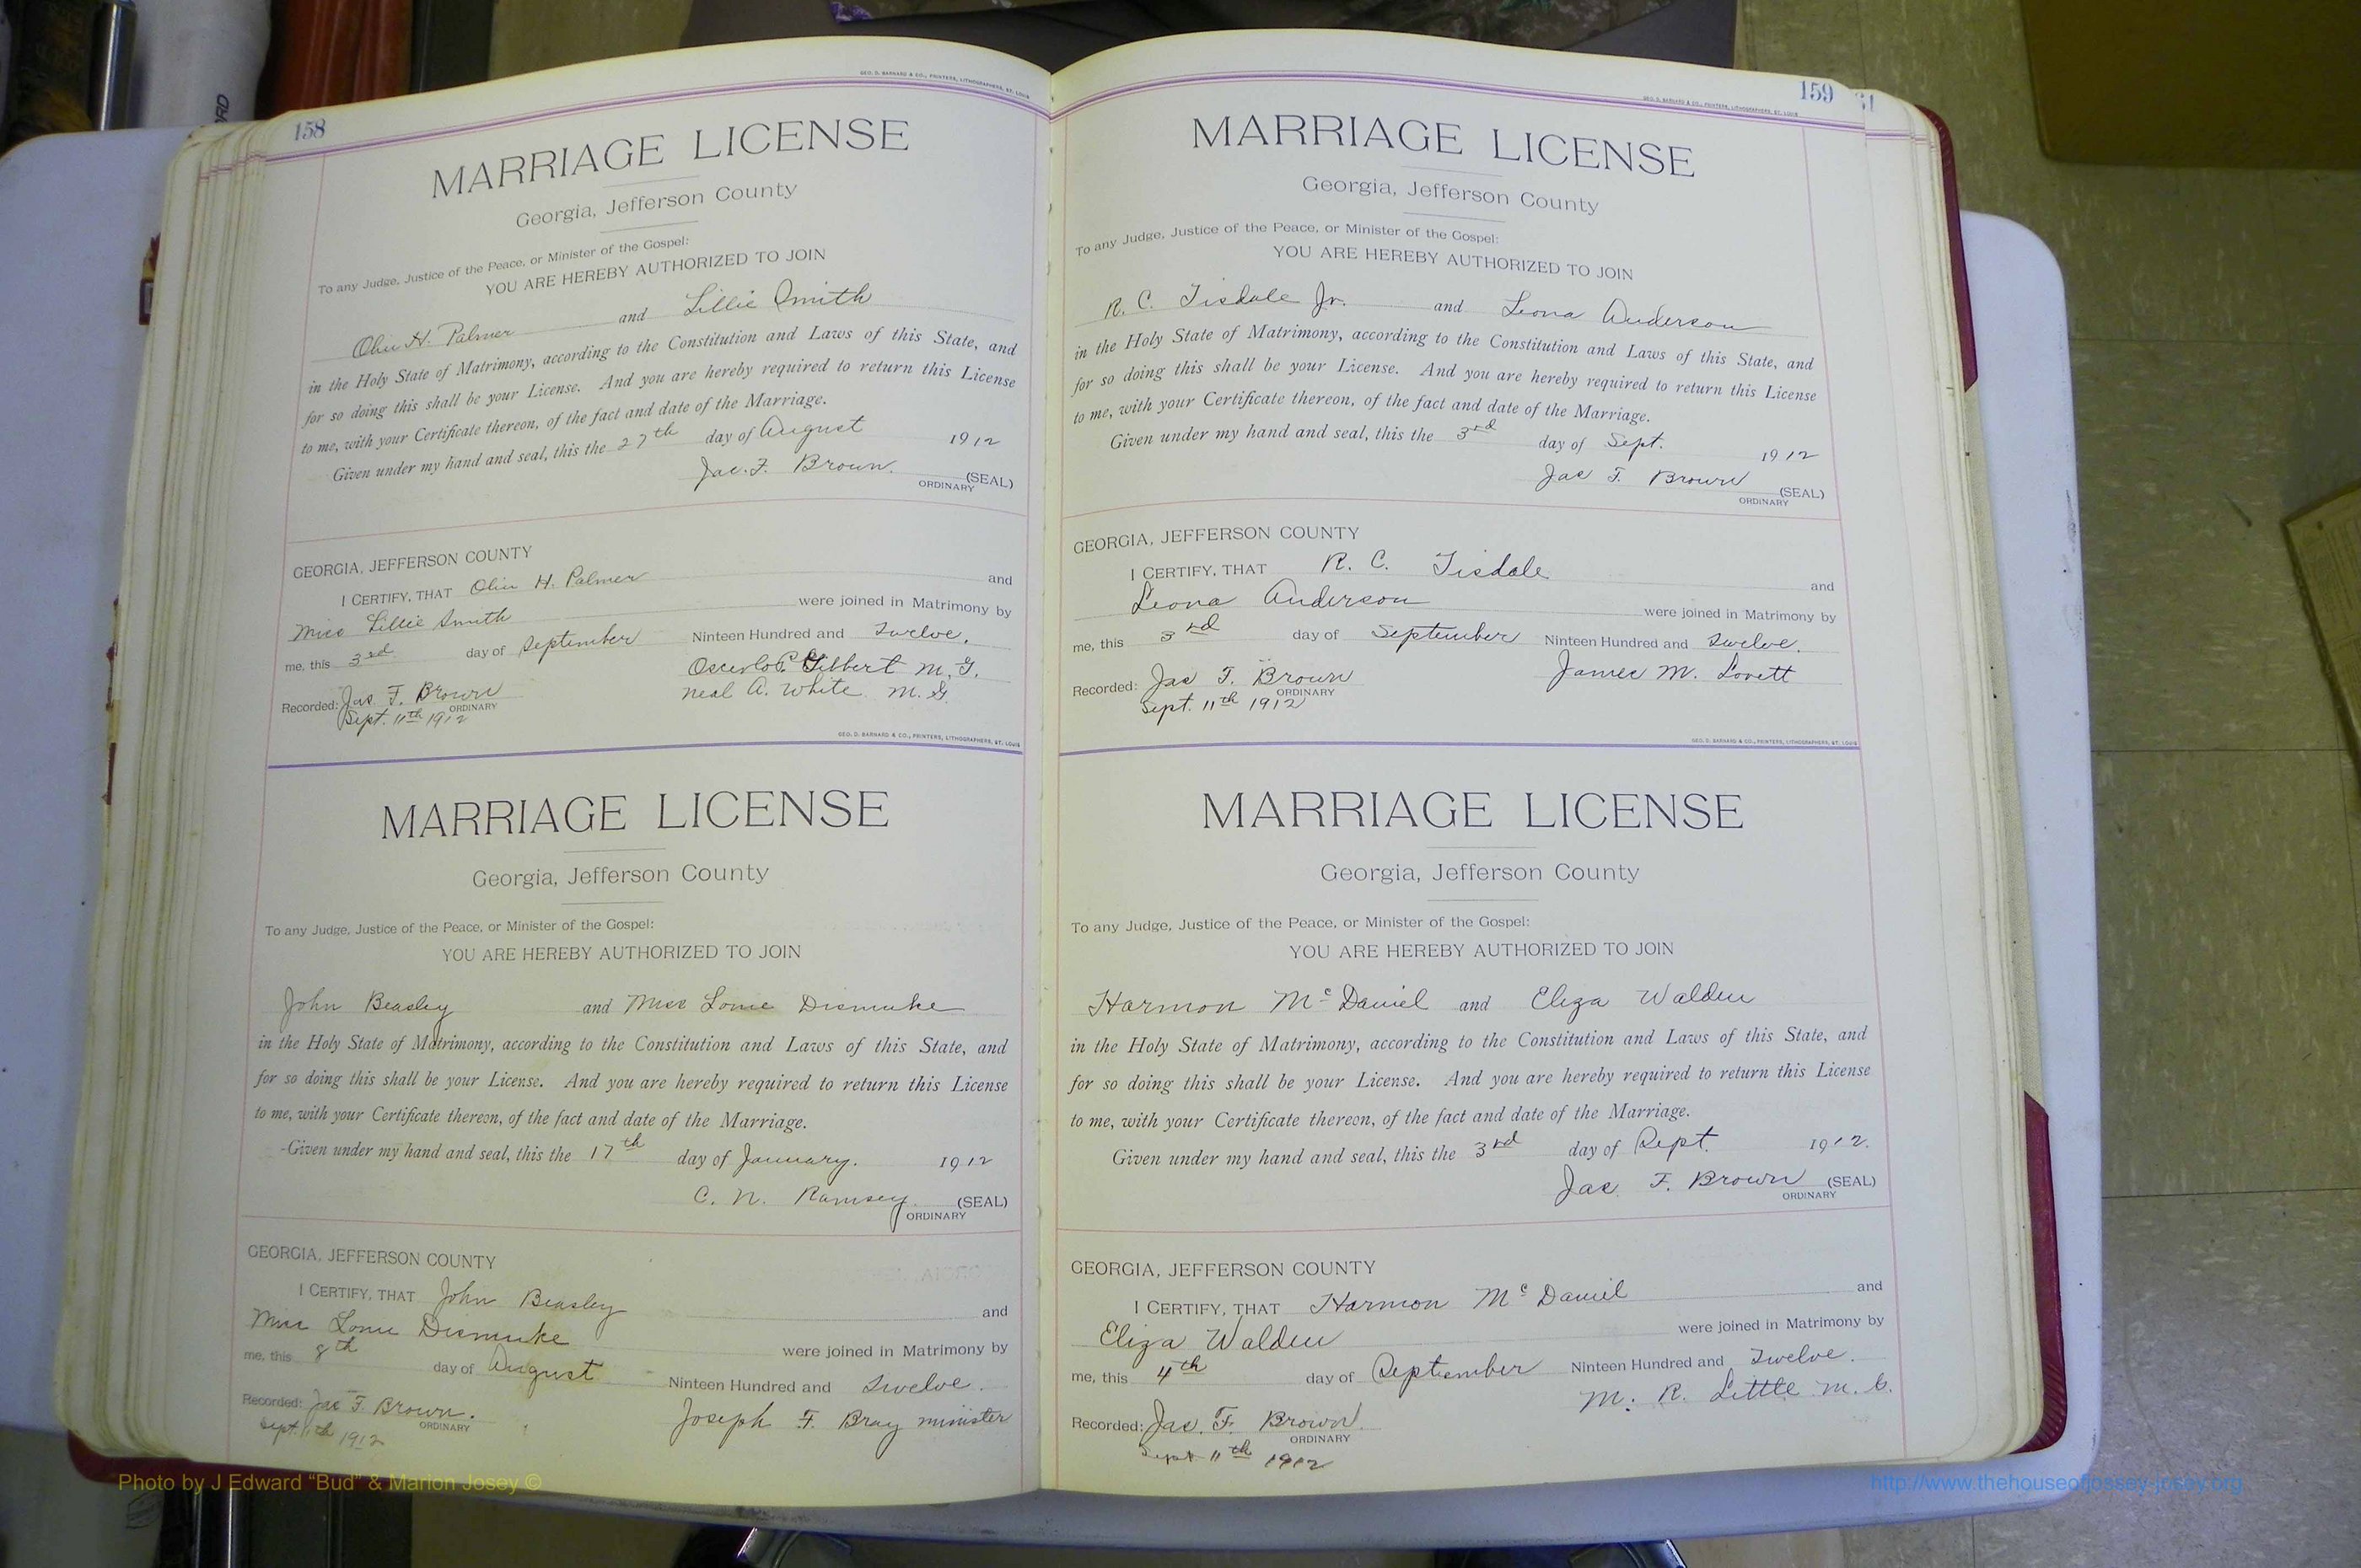 GEO. D. BARNARD & CO., PRINTERS, LITHOGRAPHERS, ST. LOUIS
158
MARRIAGE LICENSE
Georgia, Jefferson County
To any Judge, Justice of the Peace, or Minister of the Gospel:
YOU ARE HEREBY AUTHORIZED TO JOIN
Olin H. Palmer and Lillie Smith
in the Holy State of Matrimony, according to the Constitution and Laws of this State, and
for so doing this shall be your License. And you are hereby required to return this License
to me, with your Certificate thereon, of the fact and date of the Marriage.
Given under my hand and seal, this the 27th day of August 1912
Jas. F. Brown. (SEAL)
ORDINARY
GEORGIA, JEFFERSON COUNTY
I CERTIFY, THAT Olin H. Palmer and
Miss Lillie Smith were joined in Matrimony by
me, this 3rd day of September Ninteen Hundred and Twelve.
Gilbert M. G.
Recorded: Jas F. Brown Neal A. White M. G.
ORDINARY
Sept. 11th 1912
GEO. D. BARNARD & CO., PRINTERS, LITHOGRAPHERS, ST. LOUIS
MARRIAGE LICENSE
Georgia, Jefferson County
To any Judge, Justice of the Peace, or Minister of the Gospel:
YOU ARE HEREBY AUTHORIZED TO JOIN
John Beasley and Miss Lonie Dismuke
in the Holy State of Matrimony, according to the Constitution and Laws of this State, and
for so doing this shall be your License. And you are hereby required to return this License
to me, with your Certificate thereon, of the fact and date of the Marriage.
Given under my hand and seal, this the 17th day of January. 1912
C. N. Ramsey. (SEAL)
ORDINARY
GEORGIA, JEFFERSON COUNTY
I CERTIFY, THAT John Beasley and
Miss Lonie Dismuke were joined in Matrimony by
me, this 8th day of August Ninteen Hundred and Twelve.
Recorded: Jas F. Brown. Joseph F. Bray minister
ORDINARY
Sept. 11th 1912
GEO. D. BARNARD & CO., PRINTERS, LITHOGRAPHERS, ST. LOUIS
159
MARRIAGE LICENSE
Georgia, Jefferson County
To any Judge, Justice of the Peace, or Minister of the Gospel:
YOU ARE HEREBY AUTHORIZED TO JOIN
R. C. Tisdale Jr. and Leona Anderson
in the Holy State of Matrimony, according to the Constitution and Laws of this State, and
for so doing this shall be your License. And you are hereby required to return this License
to me, with your Certificate thereon, of the fact and date of the Marriage.
Given under my hand and seal, this the 3rd day of Sept. 1912
Jas F. Brown (SEAL)
ORDINARY
GEORGIA, JEFFERSON COUNTY
I CERTIFY, THAT R. C. Tisdale and
Leona Anderson were joined in Matrimony by
me, this 3rd day of September Ninteen Hundred and Twelve.
Recorded: Jas F. Brown James M. Lovett
ORDINARY
Sept. 11th 1912
GEO. D. BARNARD & CO., PRINTERS, LITHOGRAPHERS, ST. LOUIS
MARRIAGE LICENSE
Georgia, Jefferson County
To any Judge, Justice of the Peace, or Minister of the Gospel:
YOU ARE HEREBY AUTHORIZED TO JOIN
Harmon McDaniel and Eliza Walden
in the Holy State of Matrimony, according to the Constitution and Laws of this State, and
for so doing this shall be your License. And you are hereby required to return this License
to me, with your Certificate thereon, of the fact and date of the Marriage.
Given under my hand and seal, this the 3rd day of Sept. 1912.
Jas. F. Brown (SEAL)
ORDINARY
GEORGIA, JEFFERSON COUNTY
I CERTIFY, THAT Harmon McDaniel and
Eliza Walden were joined in Matrimony by
me, this 4th day of September Ninteen Hundred and Twelve.
M. R. Little M. G.
Recorded: Jas. F. Brown.
ORDINARY
Sept 11th 1912
Photo by J Edward “Bud” & Marion Josey ©
http://www.thehouseofjossey-josey.org